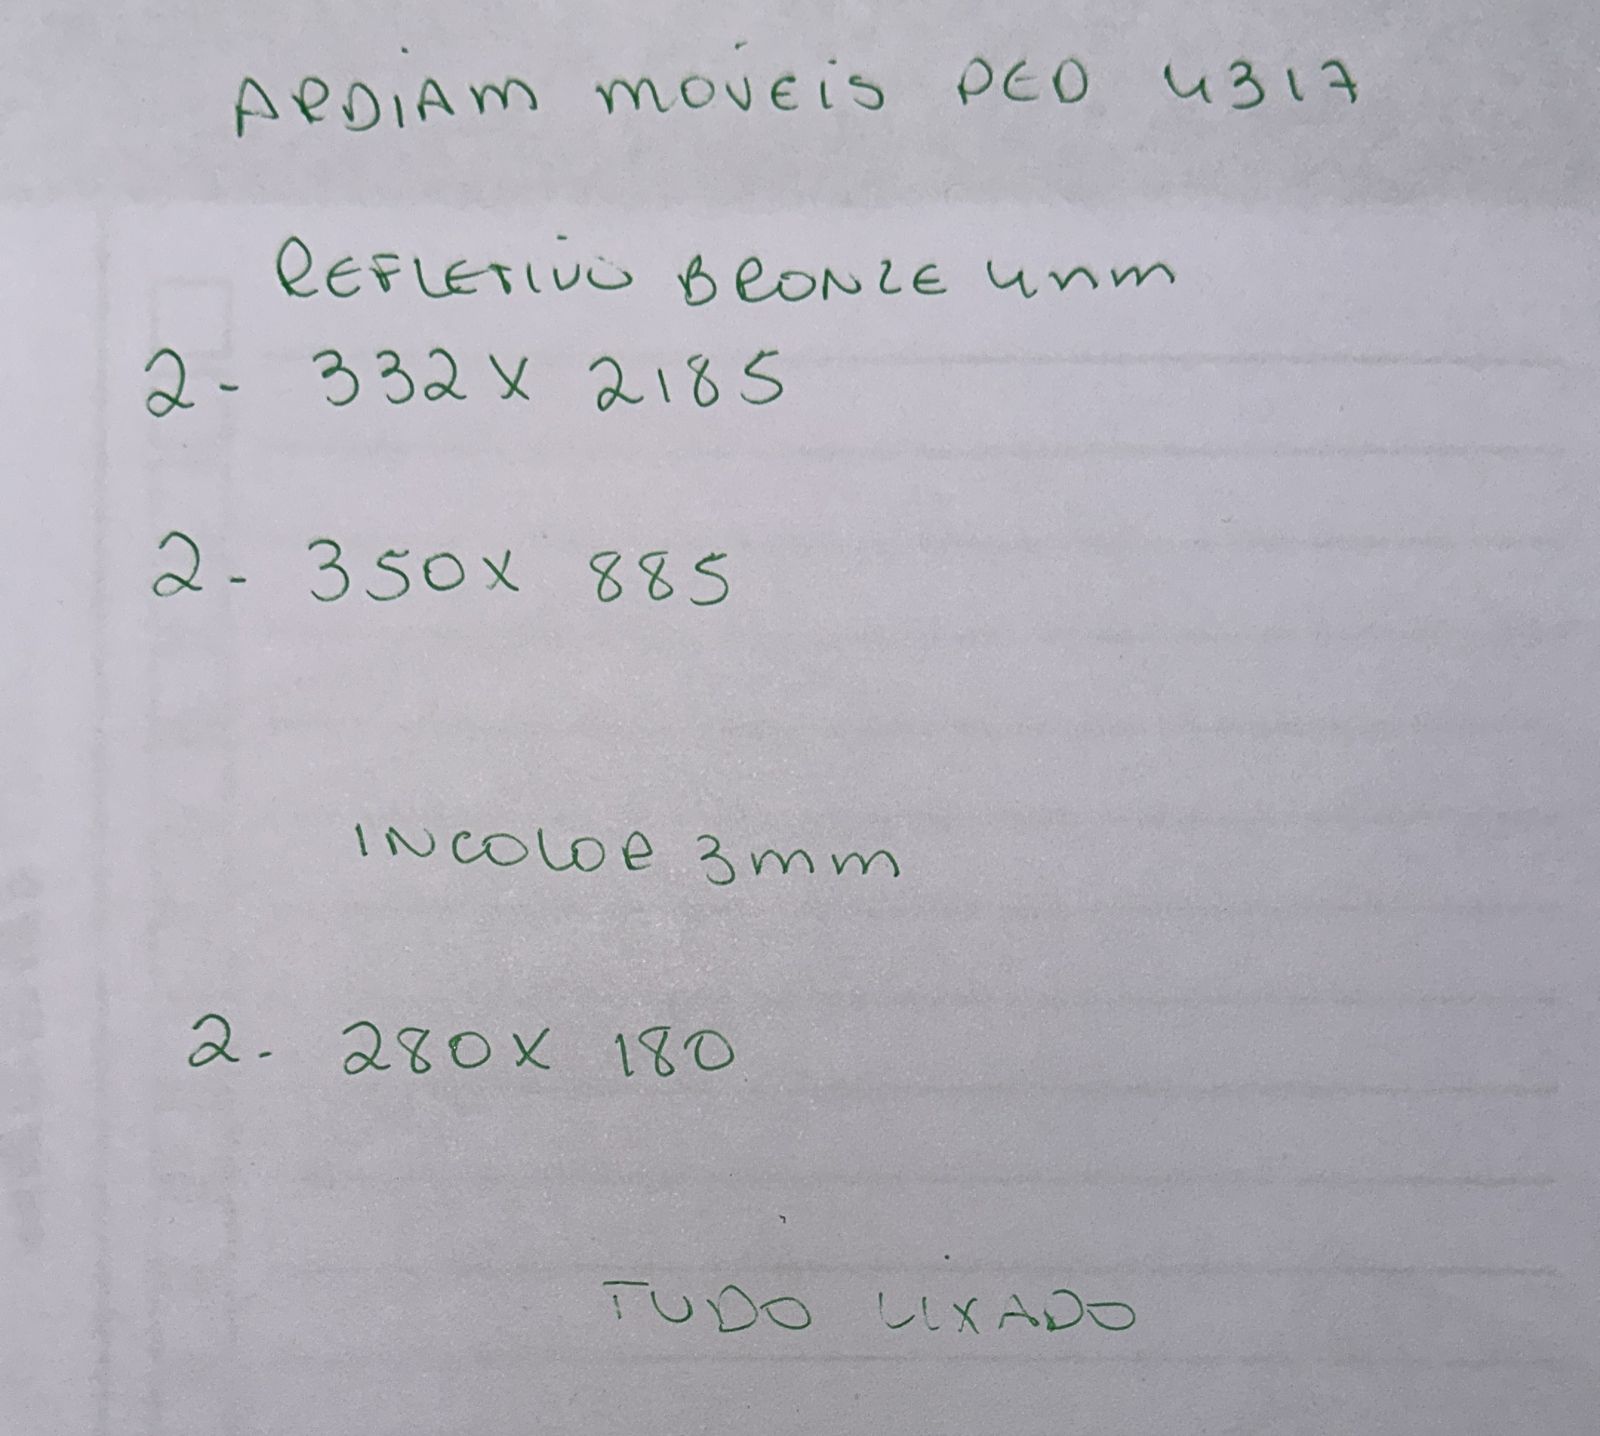 ARDIAM MÓVEIS PED 4317
REFLETIVO BRONZE 4mm
2- 332 X 2185
2- 350 X 885
INCOLOR 3mm
2- 280 X 180
TUDO LIXADO